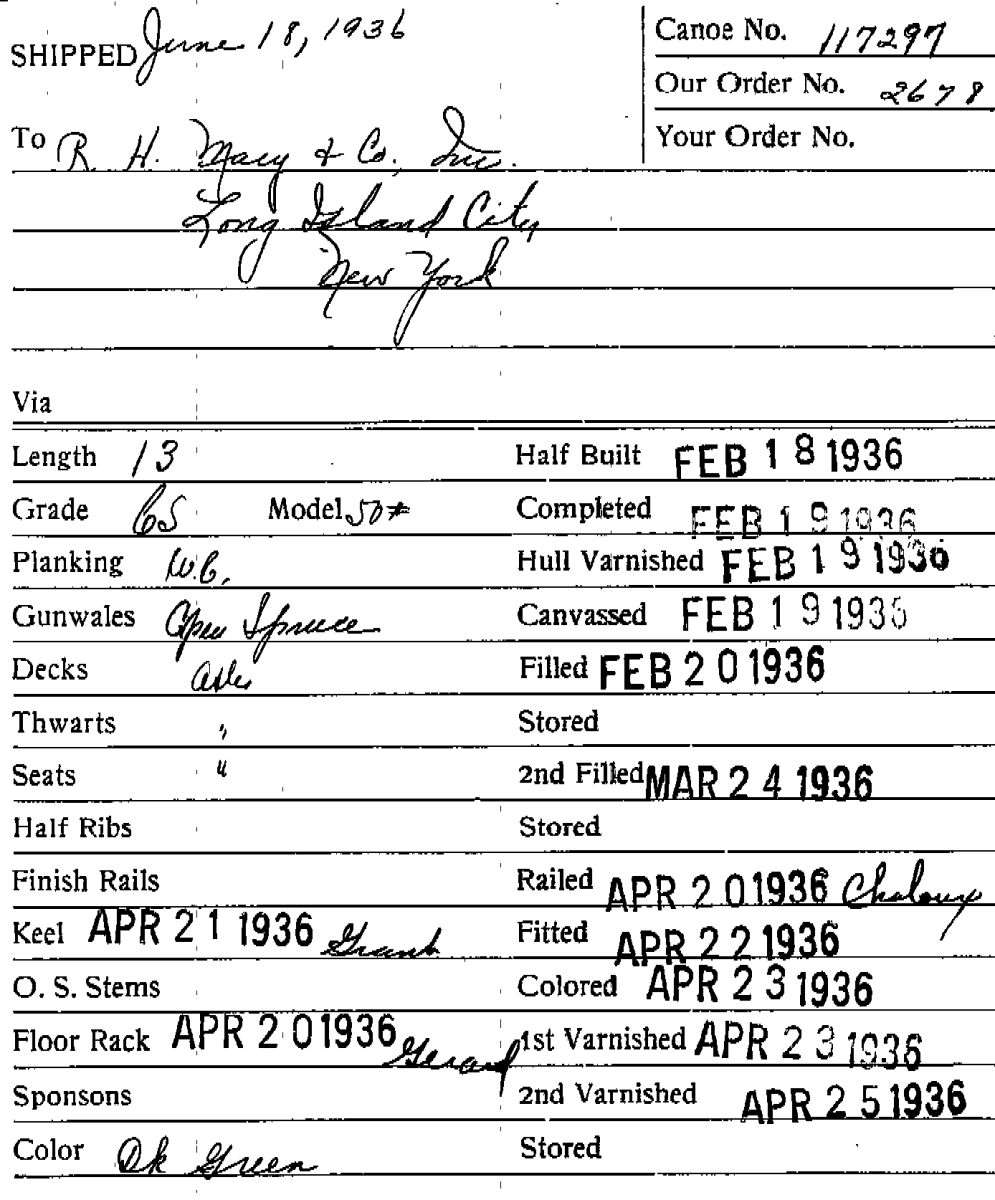 SHIPPED June 18, 1936
Canoe No. 117297
Our Order No. 2678
Your Order No.
To R. H. Macy & Co. Inc.
Long Island City
New York
Via
Length 13 Half Built FEB 18 1936
Grade CS Model 50# Completed FEB 19 1936
Planking W.C. Hull Varnished FEB 19 1936
Gunwales Open Spruce Canvassed FEB 19 1936
Decks Ash Filled FEB 20 1936
Thwarts " Stored
Seats " 2nd Filled MAR 24 1936
Half Ribs Stored
Finish Rails Railed APR 20 1936 Chaloux
Keel APR 21 1936 Grant Fitted APR 22 1936
O. S. Stems Colored APR 23 1936
Floor Rack APR 20 1936 Gerard 1st Varnished APR 23 1936
Sponsons 2nd Varnished APR 25 1936
Color Dk Green Stored